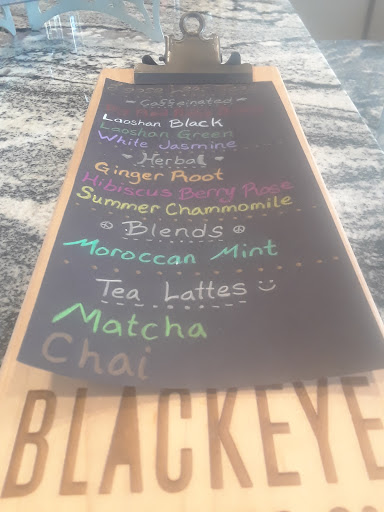 Loose Leaf Teas
Caffeinated
Laoshan Black
Laoshan Green
White Jasmine
Herbal
Ginger Root
Hibiscus Berry Rose
Summer Chammomile
Blends
Moroccan Mint
Tea Lattes
Matcha
Chai
BLACKEYE